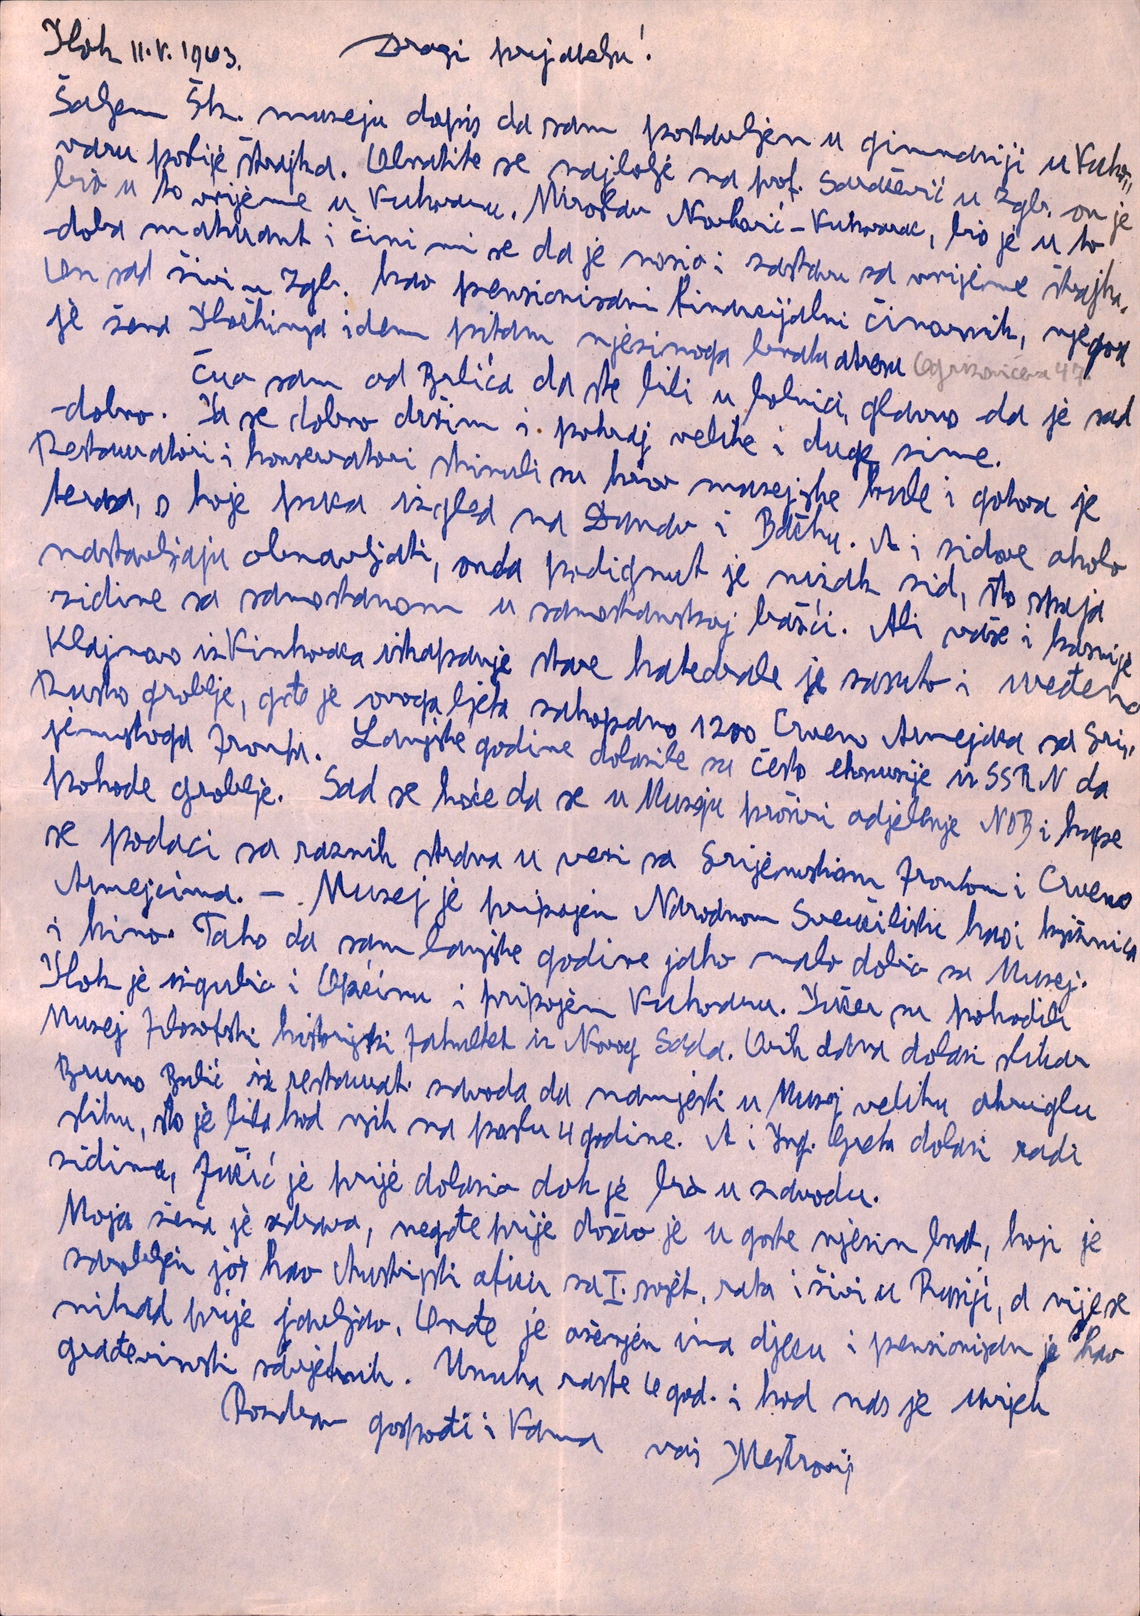 Ilok 11.V.1963. Dragi prijatelju!
Šaljem Šk. muzeju dopis da sam postavljen u gimnaziji u Vuko-
varu poslije štrajka. Obratite se najbolje na prof. Saračević u Zgb. on je
bio u to vrijeme u Vukovaru. Miroslav Novković-Vukovarac, bio je u to
doba maturant i čini mi se da je nosio i zastavu za vrijeme štrajka.
On sad živi u Zgb. kao pensionisani financijalni činovnik, njegova
je žena Iločkinja idem pitam njezinoga brata adresu Ogrizovićeva 47.
Čuo sam od Brlića da ste bili u bolnici, glavno da je sad
dobro. Ja se dobro držim i pokraj velike i duge zime.
Restauratori i konservatori skinuli su krov muzejske kule i gotova je
terasa, s koje puca izgled na Dunav i Bačku. A i zidove okolo
nastavljaju obnavljati, onda podignut je nizak zid, što spaja
zidine sa samostanom u samostanskoj bašći. Ali vaše i kasnije
Klajnovo iz Vinkovaca iskapanje stare katedrale je zasuto i uređeno
Rusko groblje, gdje je ovoga ljeta zakopano 1200 Crveno Armejaca sa Srije-
jemskoga Fronta. Lanjske godine dolazile su često ekskurzije iz SSRN da
pohode groblje. Sad se hoće da se u Muzeju proširi odjelenje NOB i kupe
se podaci sa raznih strana u vezi sa Srijemskim Frontom i Crveno
Armejcima. — Muzej je pripojen Narodnom Sveučilištu kao i knjižnica
i kino. Tako da sam lanjske godine jako malo dobio za Muzej.
Ilok je izgubio i Općinu i pripojen Vukovaru. Jučer su pohodili
Muzej Filozofski historijski fakultet iz Novog Sada. Ovih dana dolazi slikar
Bruno Bulić iz restaurat. zavoda da namjesti u Muzej veliku okruglu
sliku, što je bila kod njih na poslu 4 godine. A i Ing. Greta dolazi radi
zidina, Fučić je prije dolazio dok je bio u zavodu.
Moja žena je zdrava, negdje prije došao je u goste njezin brat, koji je
zarobljen još kao Austrijski oficir za I. svjet. rata i živi u Rusiji, a nije se
nikad prije javljao. Onđe je oženjen ima djecu i pensionisan je kao
građevinski savjetnik. Unuka raste 6 god. i kod nas je uvijek
Pozdrav gospođi i Vama vaš Meštrović